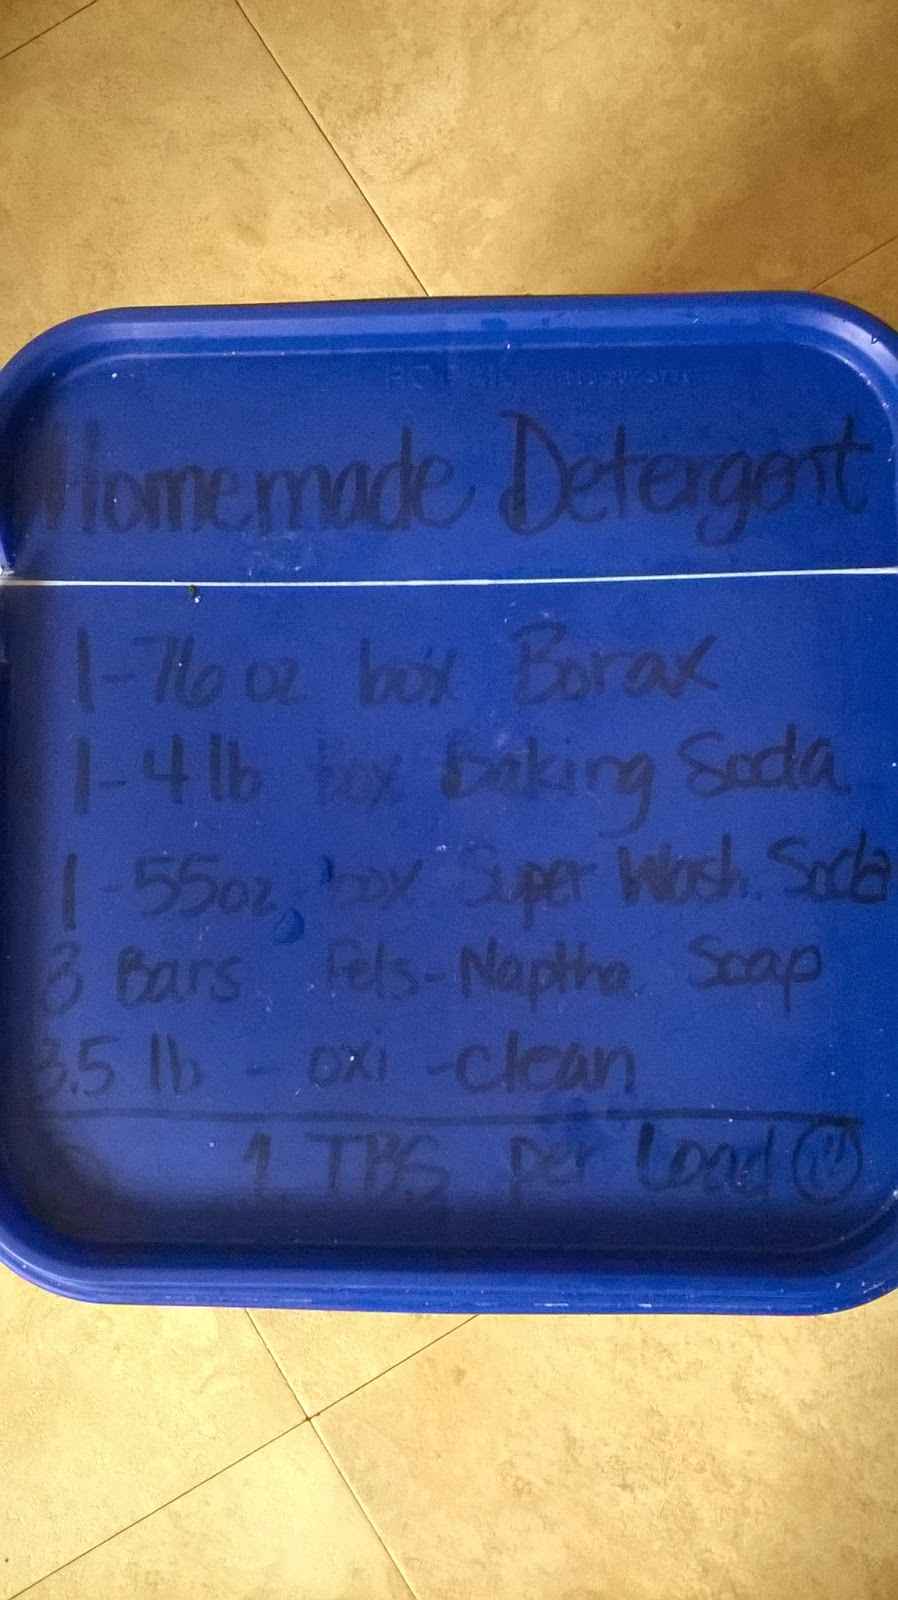 Homemade Detergent
1-76 oz box Borax
1-4 lb box baking Soda
1-55oz box Super Wash. Soda
3 Bars Fels-Naptha Soap
3.5 lb - oxi-clean
1 TBS per Load